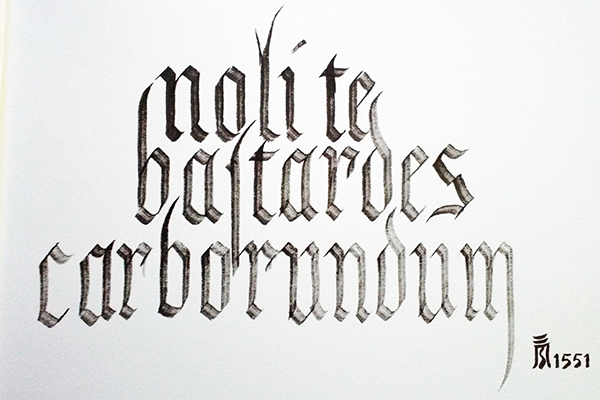 noli te
baſtardes
carborundum
1551